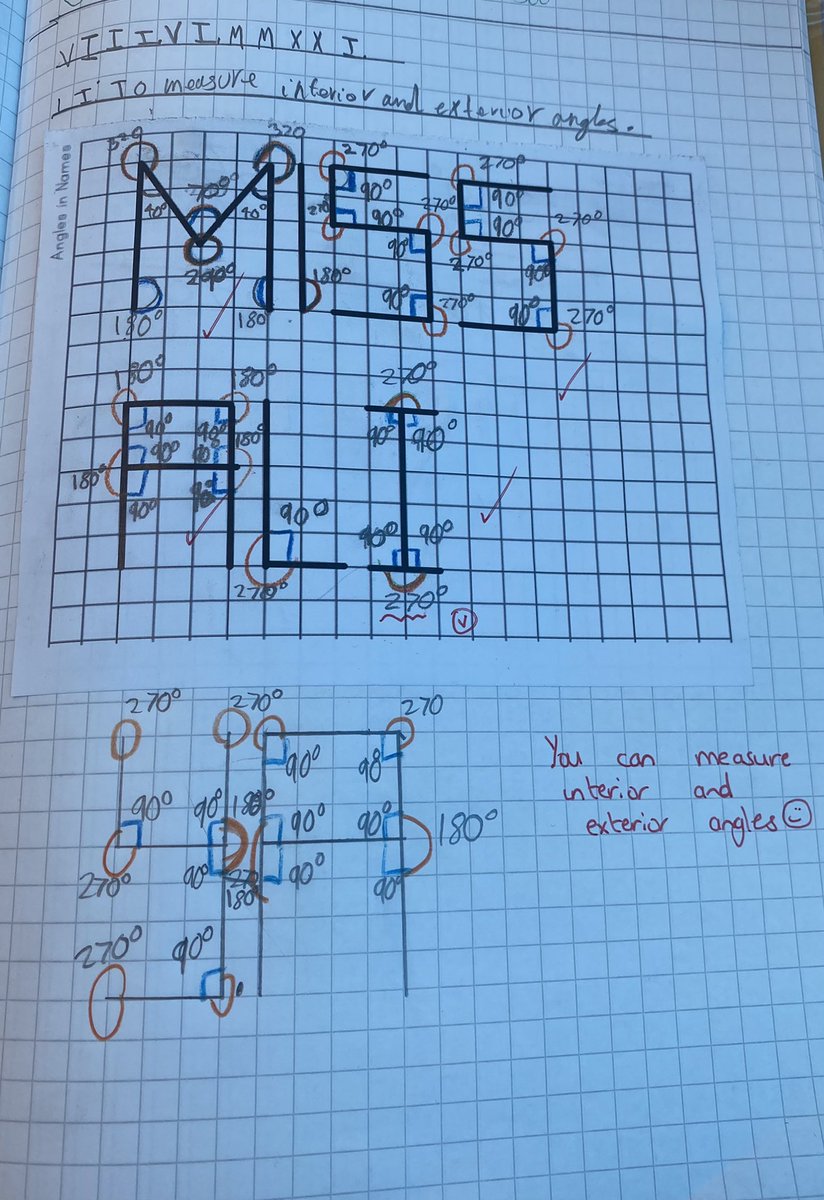 VIII.VI.MMXXI.
LI: To measure interior and exterior angles.
Angles in Names
320 320 270° 270°
40° 70° 40° 90° 90°
270° 90° 270° 90° 270°
290° 90° 270° 90°
180° 180 180° 90° 270° 90° 270°
180° 180° 270°
90° 90° 180° 90° 90°
180° 90° 90°
90° 90° 90° 90° 90°
270° 270°
V
270° 270° 270
90° 98
90° 90° 180° 90° 90° 180°
270° 90° 180° 90° 90°
270° 90°
You can measure
interior and
exterior angles